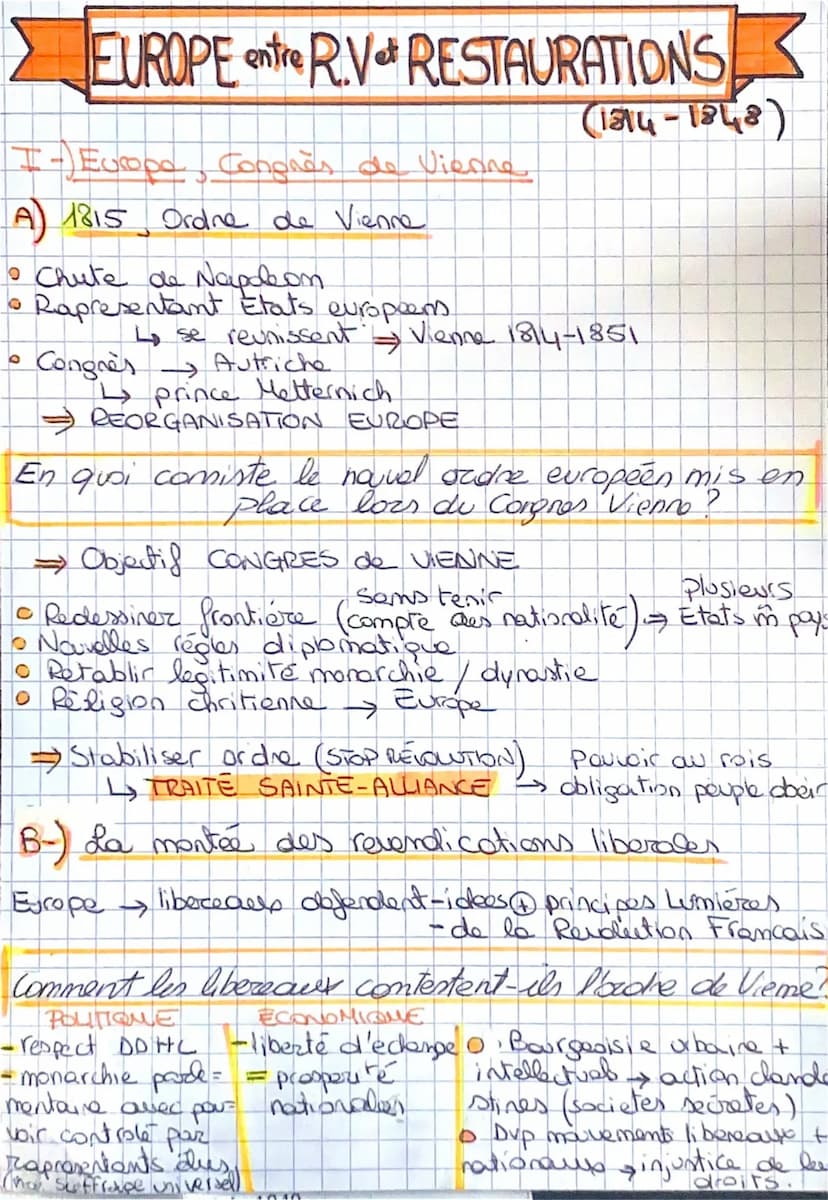 EUROPE entre R.V et RESTAURATIONS
(1814-1848)
I-) Europe, Congrès de Vienne
A) 1815, Ordre de Vienne
• Chute de Napoleon
• Rapresentant États europeens
↳ se reunissent ⇒ Vienne 1814-1851
• Congrès → Autriche
↳ prince Metternich
⇒ REORGANISATION EUROPE
En quoi consiste le nouvel ordre européen mis en
place lors du Congres Vienne?
⇒ Objectif CONGRES de VIENNE
• Redessiner frontière (sans tenir compte des nationalité) ⇒ plusieurs États m̂ pays
• Nouvelles règles diplomatique
• Retablir legitimité monarchie / dynastie
• Réligion chritienne → Europe
⇒ Stabiliser ordre (STOP RÉVOLUTION) pouvoir au rois
↳ TRAITÉ SAINTE-ALLIANCE → obligation peuple obeir
B-) La montée des revendications liberales
Europe → libereaux defendent - idees ⊕ principes Lumières
- de la Revolution Francais
Comment les libereaux contestent-ils l'ordre de Vienne?
POLITIQUE
- respect DDHC
- monarchie parle=
mentaire avec pou=
voir controlé par
rapresentants élus
(non suffrage universel)
ÉCONOMIQUE
- liberté d'échange
= prosperité
nationales
• Bourgeoisie urbaine +
intellectuels → action clande
stines (societes secretes)
• Dvp mouvements libereaux +
nationaux → injustice de les
droits.